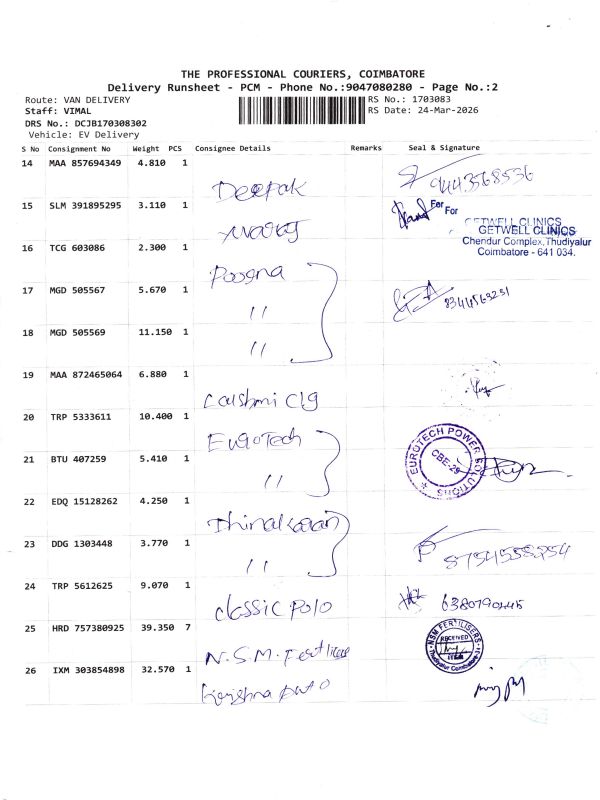 THE PROFESSIONAL COURIERS, COIMBATORE
Delivery Runsheet - PCM - Phone No.:9047080280 - Page No.:2
Route: VAN DELIVERY RS No.: 1703083
Staff: VIMAL RS Date: 24-Mar-2026
DRS No.: DCJB170308302
Vehicle: EV Delivery
S No Consignment No Weight PCS Consignee Details Remarks Seal & Signature
14 MAA 857694349 4.810 1
Deepak 9443568536
15 SLM 391895295 3.110 1 For For
GETWELL CLINICS
GETWELL CLINICS
Chendur Complex, Thudiyalur
Coimbatore - 641 034.
16 TCG 603086 2.300 1
17 MGD 505567 5.670 1
" 8344563231
18 MGD 505569 11.150 1
"
19 MAA 872465064 6.880 1
Laxshmi Clg
20 TRP 5333611 10.400 1
EuroTech
EUROTECH POWER SOLUTIONS
CBE-29
21 BTU 407259 5.410 1
"
22 EDQ 15128262 4.250 1
Dhinakaran
23 DDG 1303448 3.770 1
"
24 TRP 5612625 9.070 1
classic polo
25 HRD 757380925 39.350 7
N.S.M. Fertiliser
NSM FERTILISERS
RECEIVED
Thudiyalur Coimbatore
26 IXM 303854898 32.570 1
Krishna auto